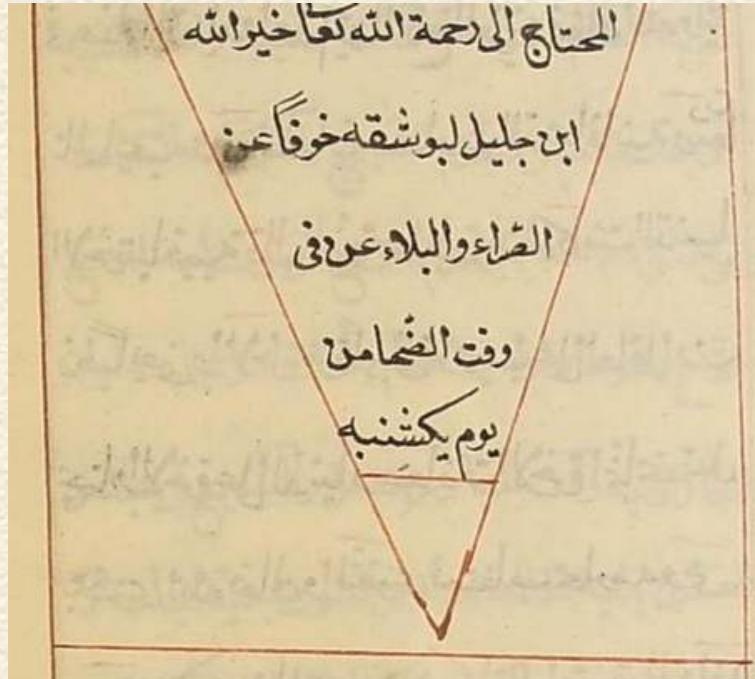 المحتاج الى رحمة الله تعا خير الله
ابن جليل لبو شقه خوفاً عن
الضراء والبلاء عن فى
وقت الضحا من
يوم يكشنبه